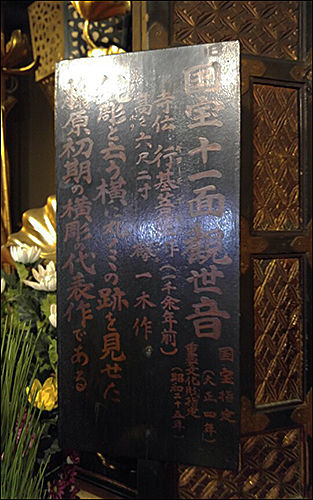 旧国宝十一面觀世音
国宝指定
(大正四年)
重要文化財指定
(昭和二十五年)
寺伝 行基菩 作(一千余年前)
高さ六尺二寸 一木作
彫と云う横に の跡を見せた
藤原初期の横彫の代表作である